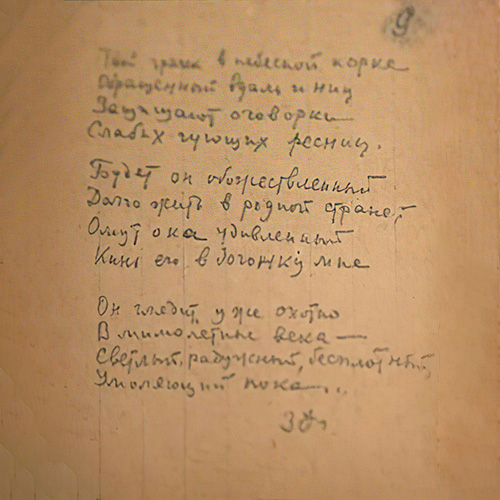 9
Твой зрачок в небесной корке
Обращенный вдаль и ниц
Защищают оговорки
Слабых чующих ресниц.
Будет он обожествленный
Долго жить в родной стране,
Омут ока удивленный
Кинь его в догонку мне
Он глядит уже охотно
В мимолетные века —
Светлый, радужный, бесплотный,
Умоляющий пока...